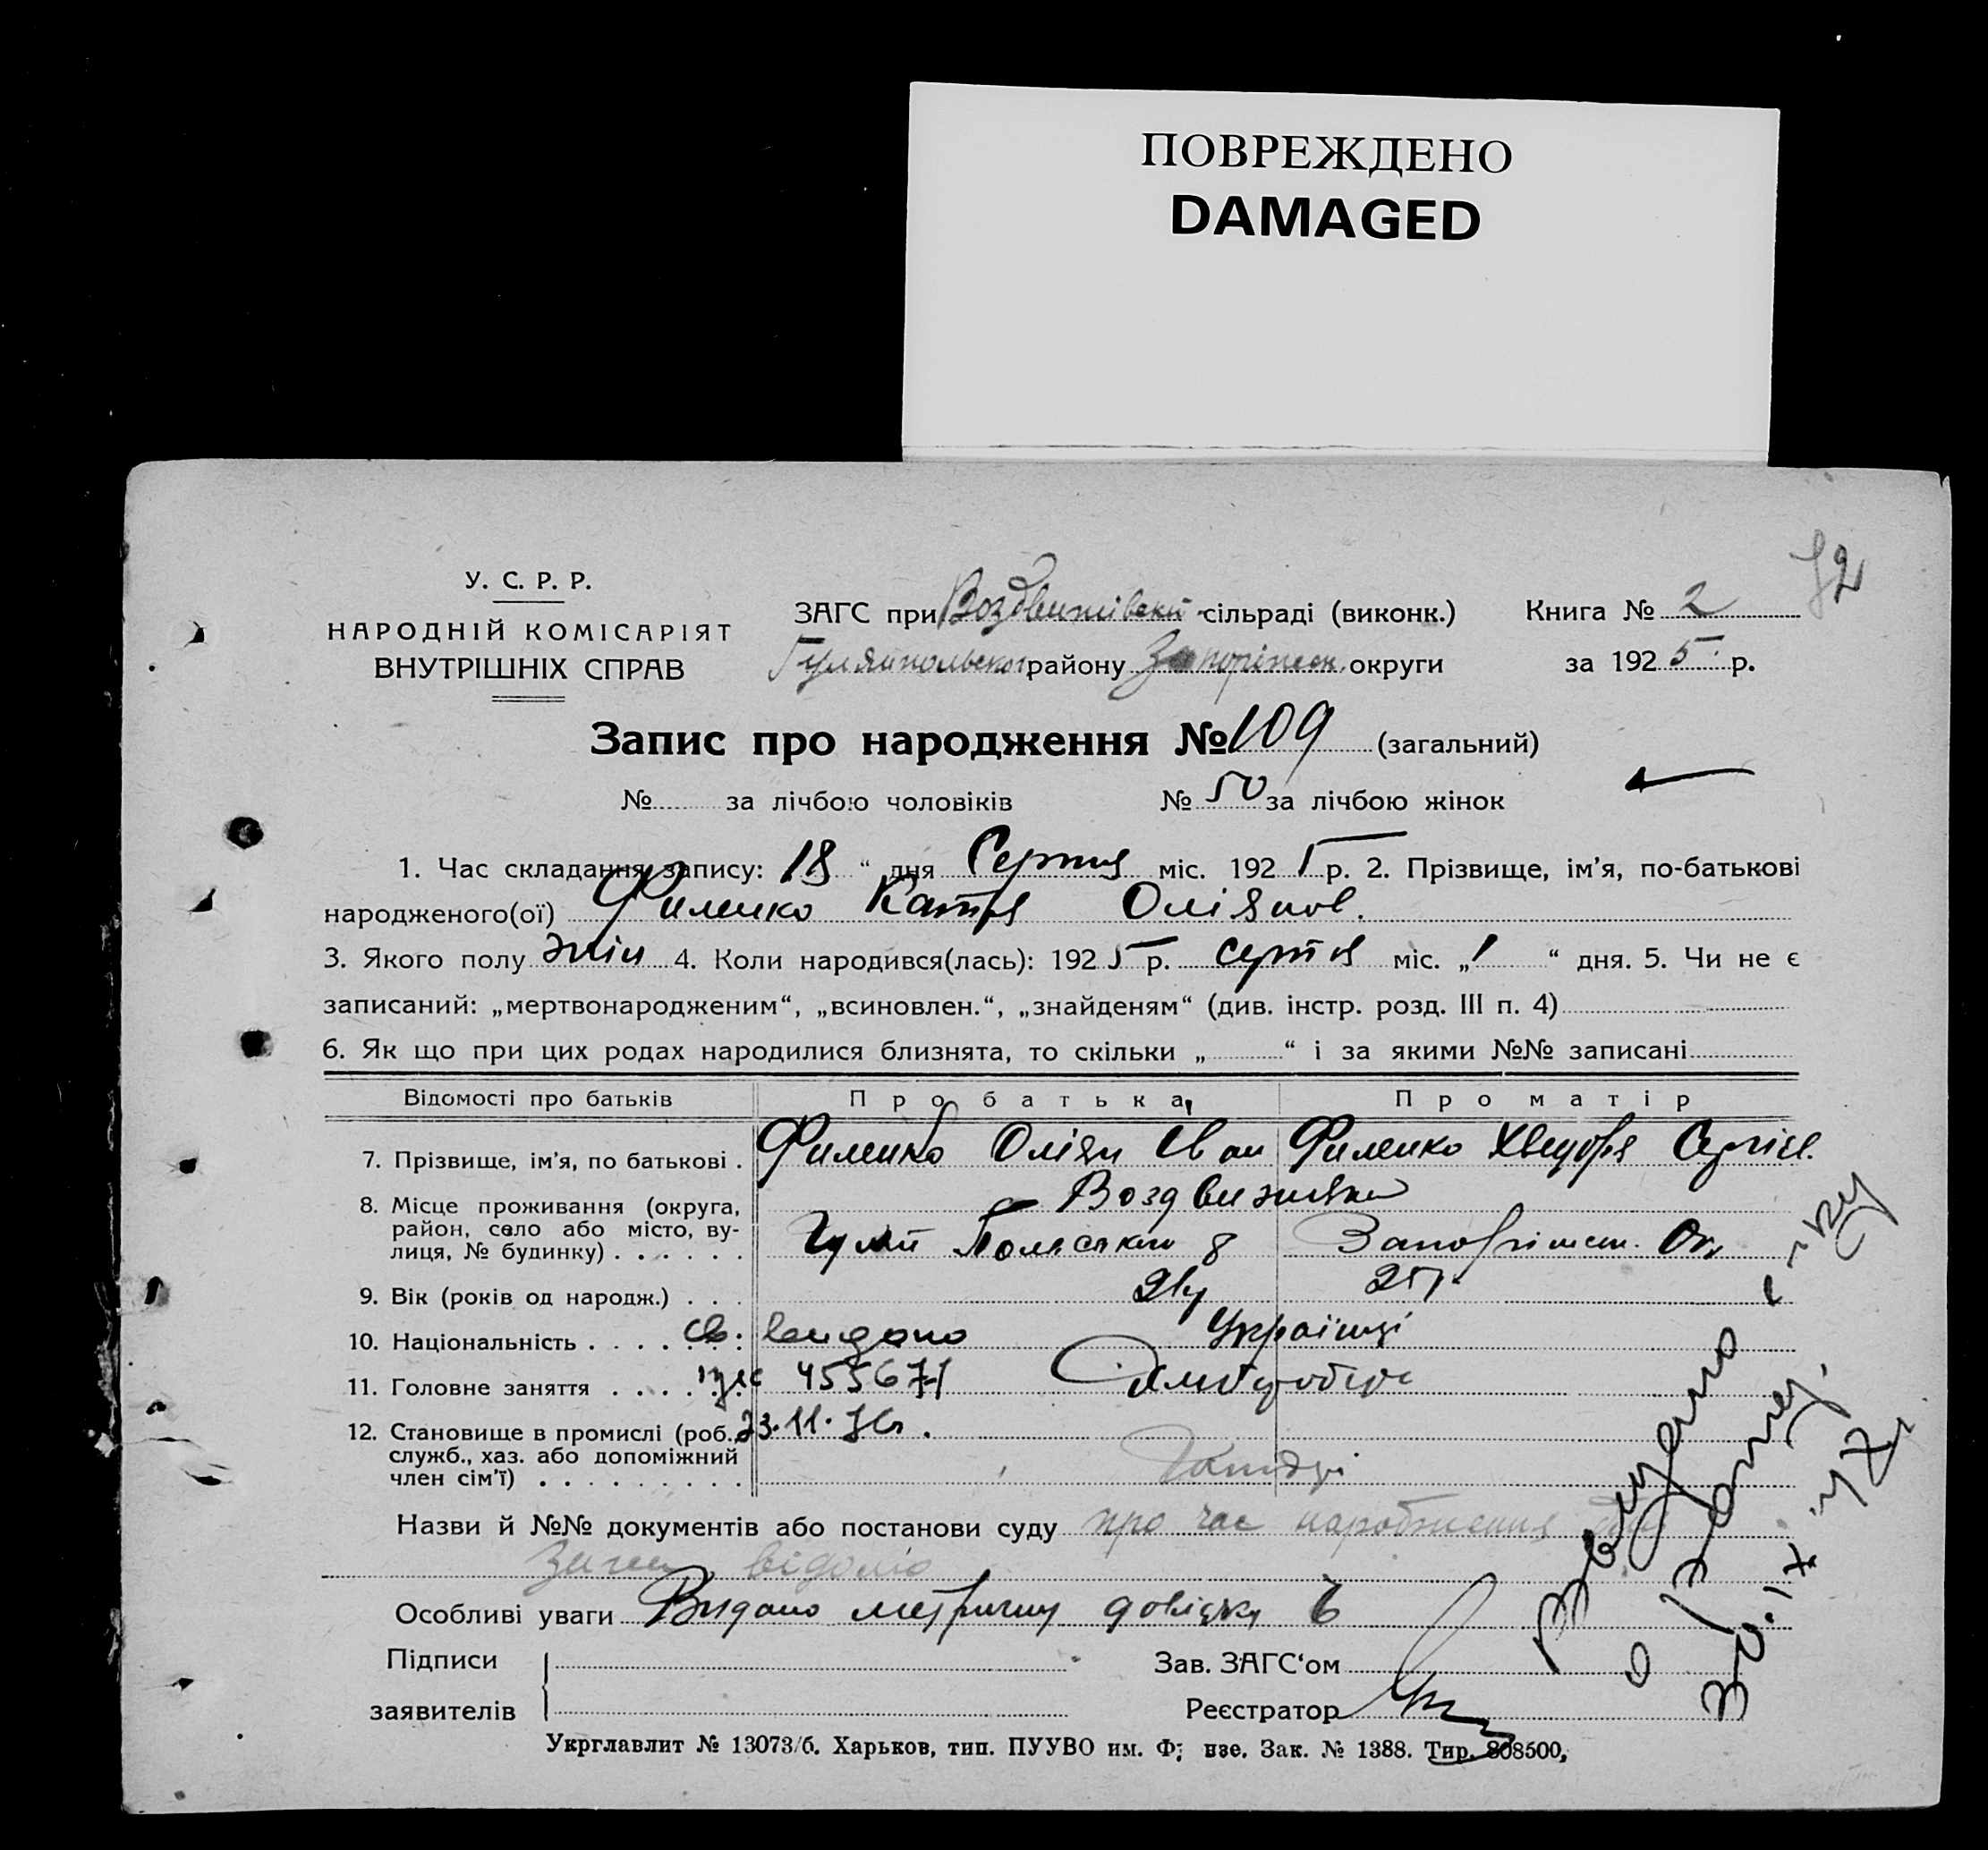 ПОВРЕЖДЕНО
DAMAGED
У. С. Р. Р.
НАРОДНІЙ КОМІСАРІЯТ
ВНУТРІШНІХ СПРАВ
ЗАГС при Воздвижівскій сільраді (виконк.)
Книга № 2
Гуляйпольског району Запоріжськ. округи
за 1925 р.
Запис про народження № 109 (загальний)
№ за лічбою чоловіків № 50 за лічбою жінок
1. Час складання запису: 18 “ дня Серпня міс. 1925 р. 2. Прізвище, ім’я, по-батькові
народженого(ої) Филенко Катря Оліянов.
3. Якого полу жін 4. Коли народився(лась): 1925 р. серпня міс. „1 “ дня. 5. Чи не є
записаний: „мертвонародженим“, „всиновлен.“, „знайденям“ (див. інстр. розд. III п. 4)
6. Як що при цих родах народилися близнята, то скільки „ “ і за якими №№ записані
Відомості про батьків Про батька Про матір
7. Прізвище, ім’я, по батькові . Филенко Оліян Іван Филенко Хведоря Сергієв.
8. Місце проживання (округа, Воздвижівка
район, село або місто, ву-
лиця, № будинку) . . . . . . Гуляй Польського р Запоріжськ. Ок.
9. Вік (років од народж.) . . . 25р
10. Національність . . . . . . . Св. видано Українці
11. Головне заняття . . . . . . . 455671 Хлібороби
12. Становище в промислі (роб., 23.11.76г.
служб., хаз. або допоміжний
член сім’ї) . . . . . . . . .
Назви й №№ документів або постанови суду про час народження
відомо
Особливі уваги Видано метричну довідку
Підписи
заявителів
Зав. ЗАГС‘ом
Реєстратор
Укрглавлит № 13073/б. Харьков, тип. ПУУВО им. Ф; нзе. Зак. № 1388. Тир. 808500,